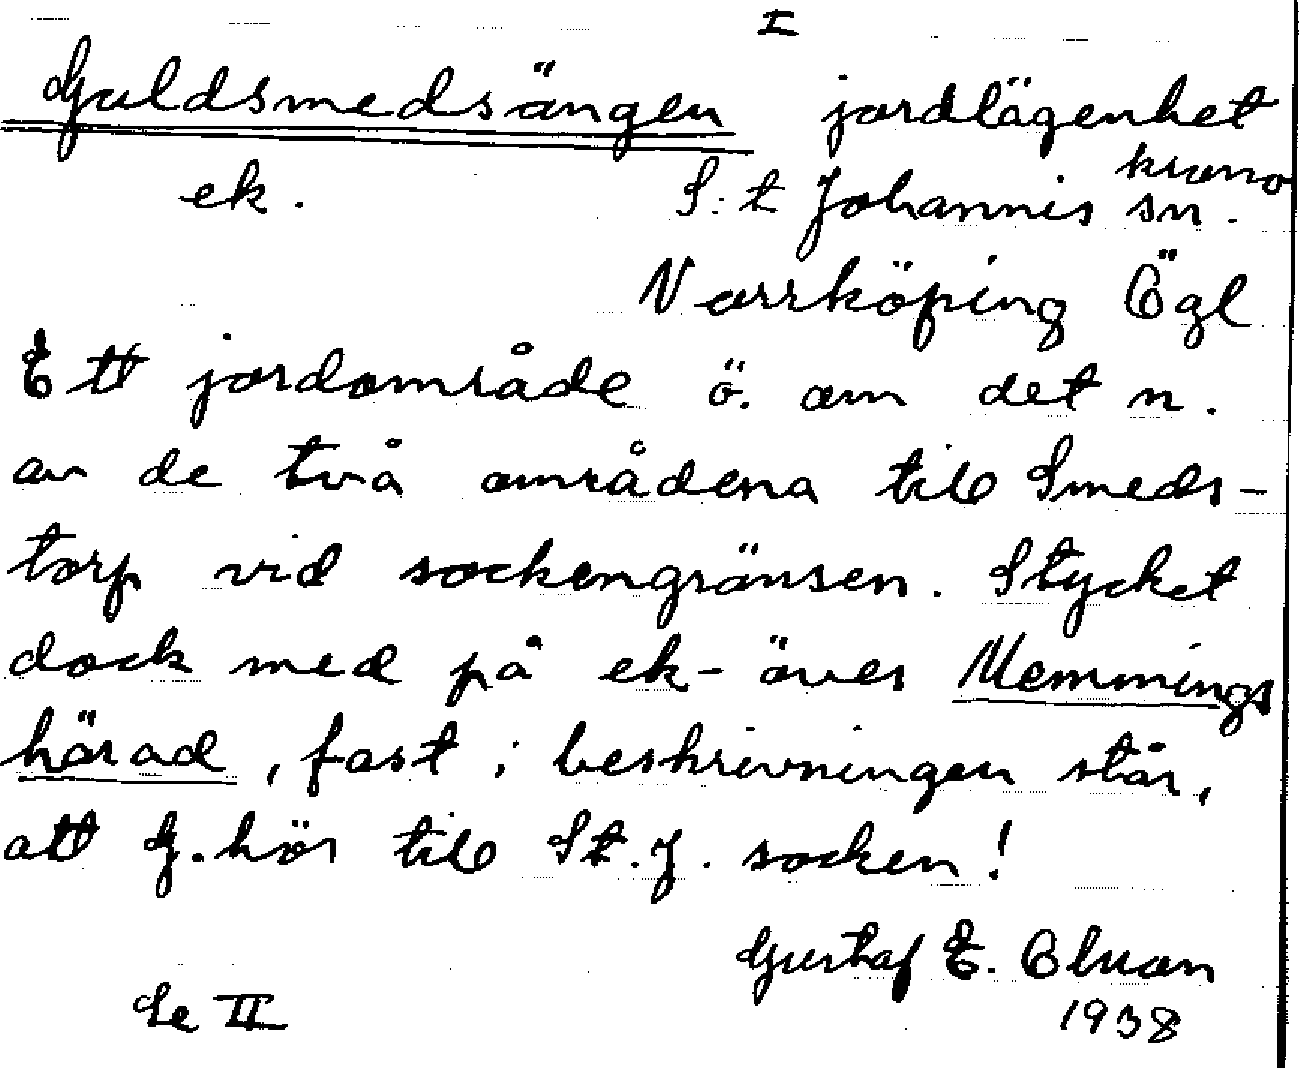 I
Guldsmedsängen jordlägenhet
krono
ek. S:t Johannis sn.
Norrköping Ögl
Ett jordområde ö. om det n.
av de två områdena till Smeds-
torp vid sockengränsen. Stycket
dock med på ek-över Memmings
härad, fast i beskrivningen står,
att G. hör till St. J. socken!
Gustaf E. Olson
1938
Se II